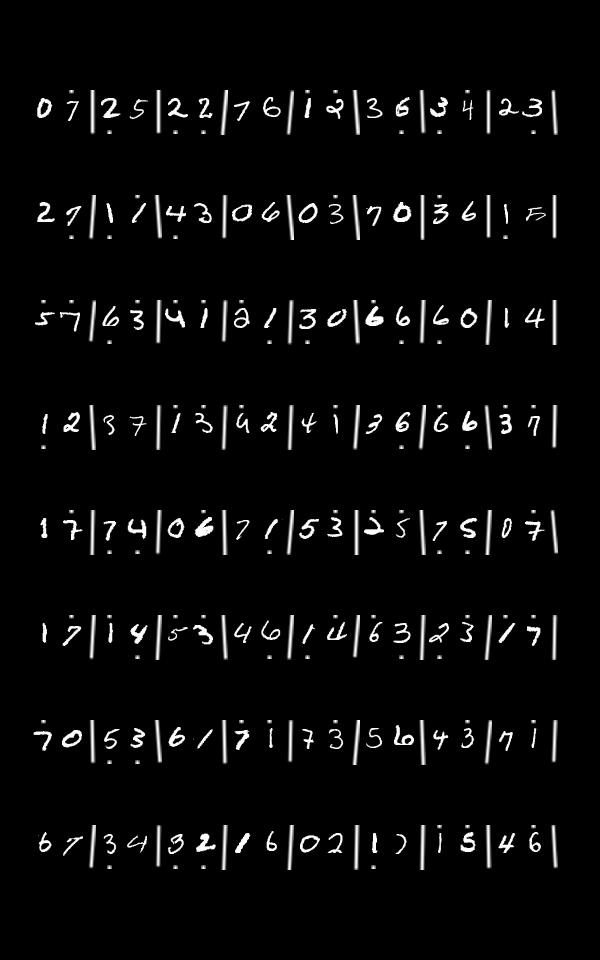 0 7 | 2 5 | 2 2 | 7 6 | 1 2 | 3 6 | 3 4 | 2 3 |
2 7 | 1 1 | 4 3 | 0 6 | 0 3 | 7 0 | 3 6 | 1 5 |
5 7 | 6 3 | 4 1 | 2 1 | 3 0 | 6 6 | 6 0 | 1 4 |
1 2 | 3 7 | 1 3 | 4 2 | 4 1 | 3 6 | 6 6 | 3 7 |
1 7 | 7 4 | 0 6 | 7 1 | 5 3 | 2 5 | 7 5 | 0 7 |
1 7 | 1 4 | 5 3 | 4 6 | 1 4 | 6 3 | 2 3 | 1 7 |
7 0 | 5 3 | 6 1 | 7 1 | 7 3 | 5 6 | 4 3 | 7 1 |
6 7 | 3 4 | 3 2 | 1 6 | 0 2 | 1 7 | 1 5 | 4 6 |